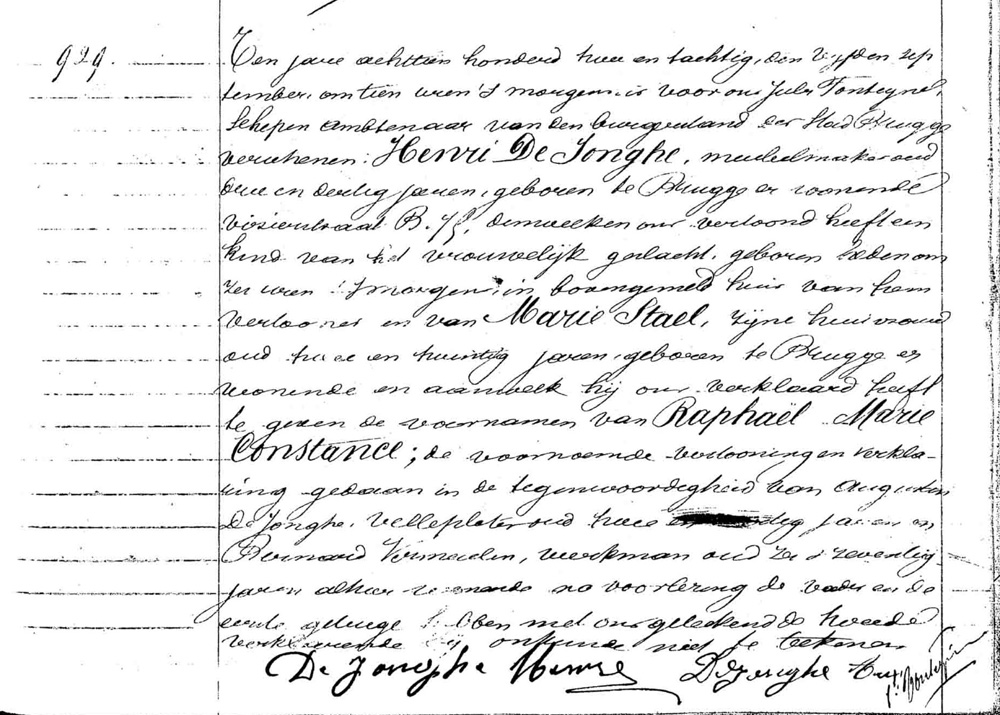 929.
Ten jare achttien honderd twee en tachtig, den vyfden sep
tember, om tien uren 's morgens, is voor ons Jules Fonteyne,
Schepen Ambtenaar van den burgerstand der Stad Brugge
verschenen: Henri De Jonghe, meubelmaker oud
drie en dertig jaren, geboren te Brugge en woonende
B. denwelken ons vertoond heeft een
kind van het vrouwelijk geslacht, geboren heden om
zes uren 's morgens in bovengemeld huis van hem
vertooner en van Marie Stael, zijne huisvrouw
oud twee en twintig jaren, geboren te Brugge en
wonende en aan welk hij ons verklaard heeft
te geven de voornamen van Raphaël Marie
Constance; de voornoemde vertooning en verkla-
ring gedaan in de tegenwoordigheid van Augusten
De Jonghe, oud twee jaren en
Bernard Vermeulen, werkman oud zes en zeventig
jaren alhier woonende na voorlezing de vader en de
eerste getuige hebben met ons geteekend de tweede
verklarende niet te teekenen
De Jonghe Henri De Jonghe